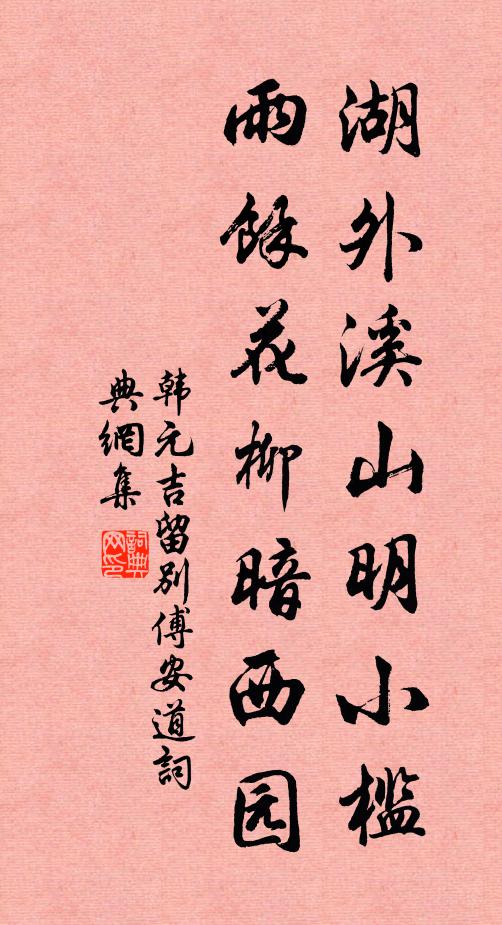 湖外溪山明小槛
雨餘花柳暗西园
韩元吉留别傅安道詞
典網集
詞典网印